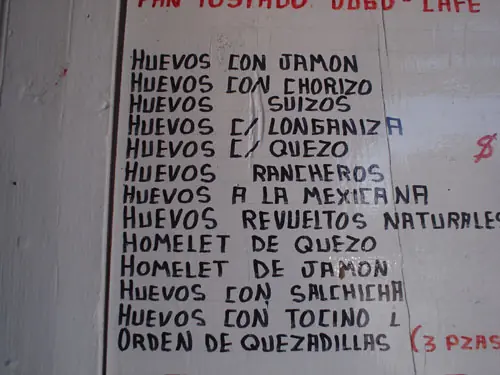 PAN TOSTADO JUGO - CAFE
HUEVOS CON JAMON
HUEVOS CON CHORIZO
HUEVOS SUIZOS
HUEVOS C/ LONGANIZA
HUEVOS C/ QUEZO
$
HUEVOS RANCHEROS
HUEVOS A LA MEXICANA
HUEVOS REVUELTOS NATURALES
HOMELET DE QUEZO
HOMELET DE JAMON
HUEVOS CON SALCHICHA
HUEVOS CON TOCINO L
ORDEN DE QUEZADILLAS (3 PZAS